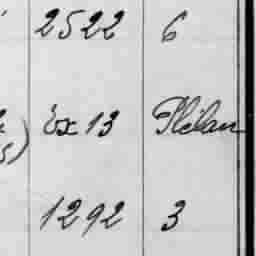 2522 6
Ex 13 Plélan
1292 3